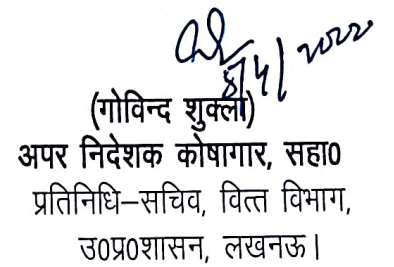 8/4/2022
(गोविन्द शुक्ला)
अपर निदेशक कोषागार, सहा0
प्रतिनिधि–सचिव, वित्त विभाग,
उ0प्र0शासन, लखनऊ।